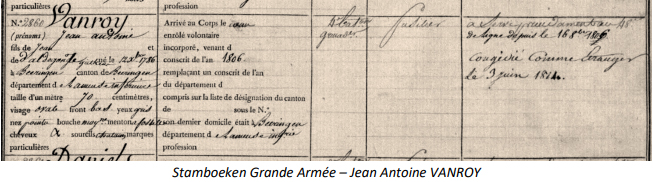 particulières
profession
N.° 2860 Vanroy
(prénoms) Jean antoine
fils de Jean et
de
né le 12 1786
à Beeringen canton de Beeringen
département d Lameuse inférieure
taille d'un mètre 70 centimètres,
visage ovale front bas yeux gris
nez pointe bouche moy. menton
cheveux & sourcils chatains marques
particulières
Arrivé au Corps le
enrôlé volontaire
incorporé, venant d
conscrit de l'an 1806.
remplaçant un conscrit de l'an
du département d
compris sur la liste de désignation du canton
de sous le N.°
son dernier domicile était à Beeringen
département d Lameuse infre
profession
fusilier
a
de ligne depuis le 1806
congédié Comme Etranger
le 3 juin 1814.
Daniels
Stamboeken Grande Armée – Jean Antoine VANROY